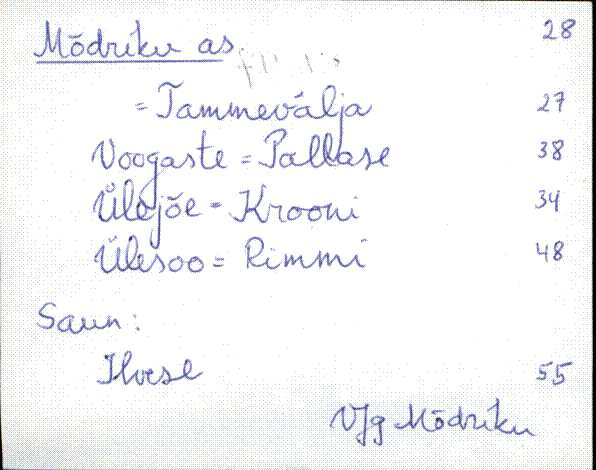 Mõdriku as. 28
= Tammevälja 27
Voogaste = Pallase 38
Ülejõe = Krooni 34
Ülesoo = Rimmi 48
Saun:
Ilvese 55
V/g Mõdriku